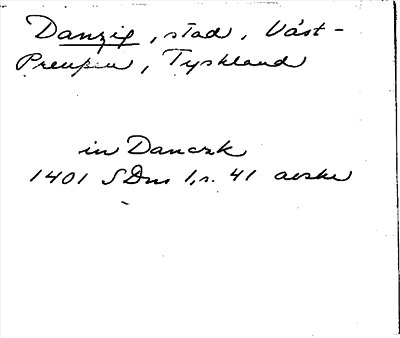 Danzig, stad, Väst-
Preussen, Tyskland
in Danczk
1401 SDns 1, s. 41 avskr